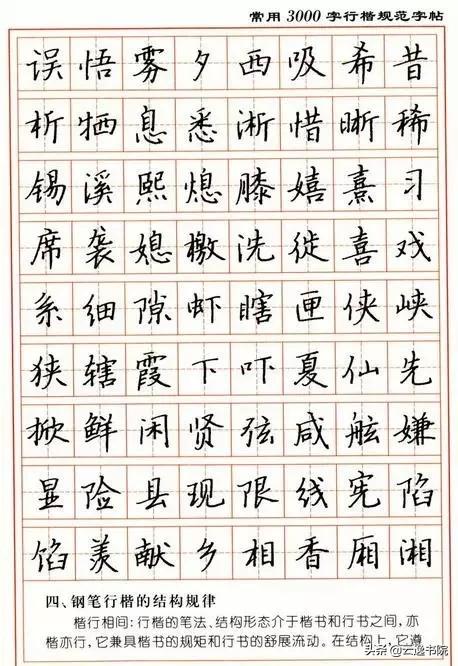 常用3000字行楷规范字帖
误悟雾夕西吸希昔
析牺息悉淅惜晰稀
锡溪熙熄膝嬉熹习
席袭媳檄洗徙喜戏
系细隙虾瞎匣侠峡
狭辖霞下吓夏仙先
掀鲜闲贤弦咸舷嫌
显险县现限线宪陷
馅羡献乡相香厢湘
四、钢笔行楷的结构规律
楷行相间:行楷的笔法、结构形态介于楷书和行书之间,亦
楷亦行,它兼具楷书的规矩和行书的舒展流动。在结构上,它遵
头条@云逸书院